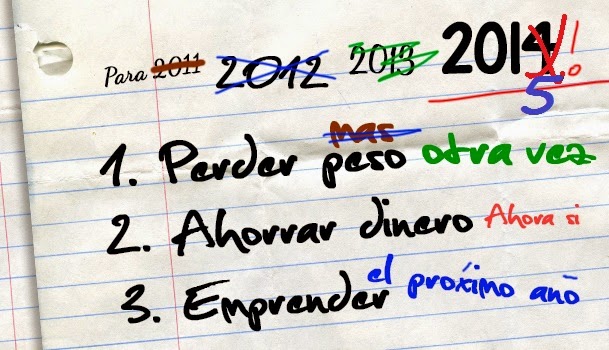 Para 2011 2012 2013 2014 5!
mas
1. Perder peso otra vez
2. Ahorrar dinero Ahora si
3. Emprender el próximo año